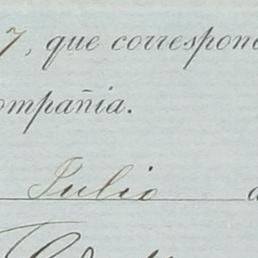 7, que correspon
ompañia.
Julio